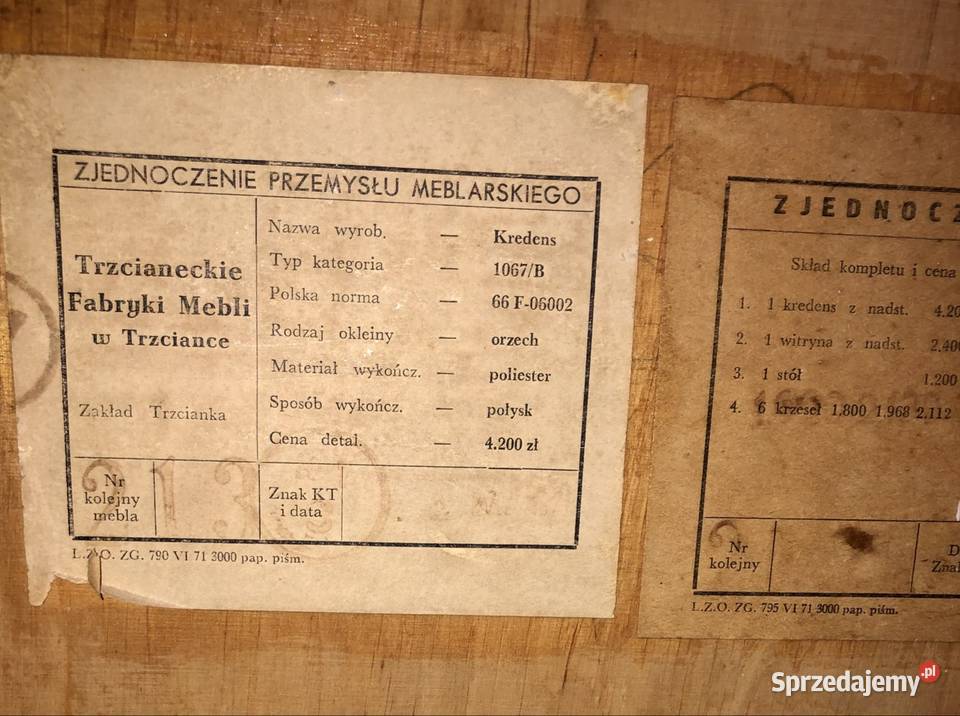 ZJEDNOCZENIE PRZEMYSŁU MEBLARSKIEGO
Trzcianeckie
Fabryki Mebli
w Trzciance
Zakład Trzcianka
Nazwa wyrob. — Kredens
Typ kategoria — 1067/B
Polska norma — 66 F-06002
Rodzaj okleiny — orzech
Materiał wykończ. — poliester
Sposób wykończ. — połysk
Cena detal. — 4.200 zł
Nr
kolejny
mebla
213
Znak KT
i data
L.Z.O. ZG. 790 VI 71 3000 pap. piśm.
ZJEDNOCZ
Skład kompletu i cena
1. 1 kredens z nadst. 4.20
2. 1 witryna z nadst. 2.400
3. 1 stół 1.200
4. 6 krzeseł 1.800 1.968 2.112
Nr
kolejny
D
Znak
L.Z.O. ZG. 795 VI 71 3000 pap. piśm.
Sprzedajemy.pl